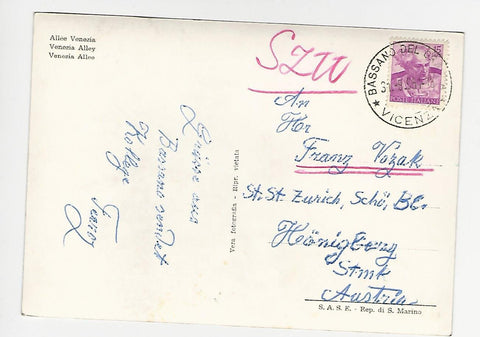 Allee Venezia
Venezia Alley
Venezia Allee
Grüsse aus
Bassano sendet
Kollege
Vera fotografia - Ripr. vietata
SZW
An
Hr
Franz Vozak
St. St. Zurich, Schö, BG.
Hönigberg
Stmk
Austria
S. A. S. E. - Rep. di S. Marino
15
POSTE ITALIANE
BASSANO DEL
VICENZA